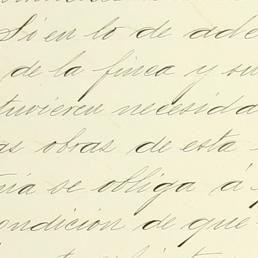 Si en lo de ade
de la finca y su
tuvieren necesida
as obras de esta
se obliga á
ondicion de que